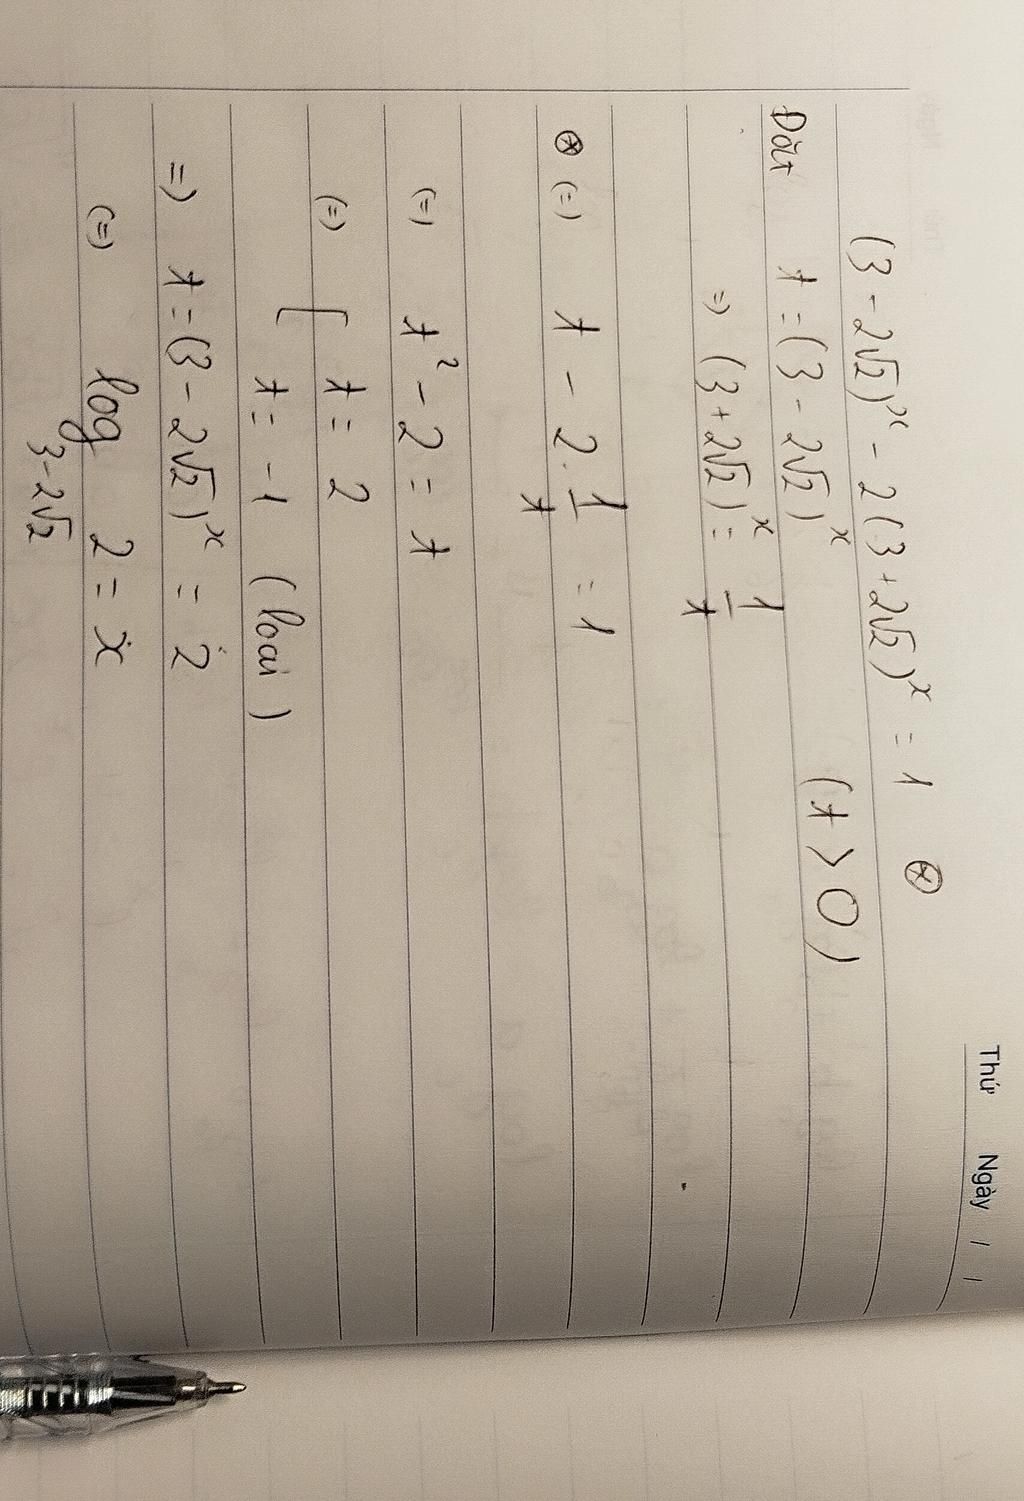 Thứ Ngày / /
(3 - 2√2)ˣ - 2(3 + 2√2)ˣ = 1 ⊛
Đặt t = (3 - 2√2)ˣ (t > 0)
=> (3 + 2√2)ˣ = 1/t
⊛ (=) t - 2. 1/t = 1
(=) t² - 2 = t
(=) [ t = 2
t = -1 (loại)
=> t = (3 - 2√2)ˣ = 2
(=) log₃₋₂√₂ 2 = x